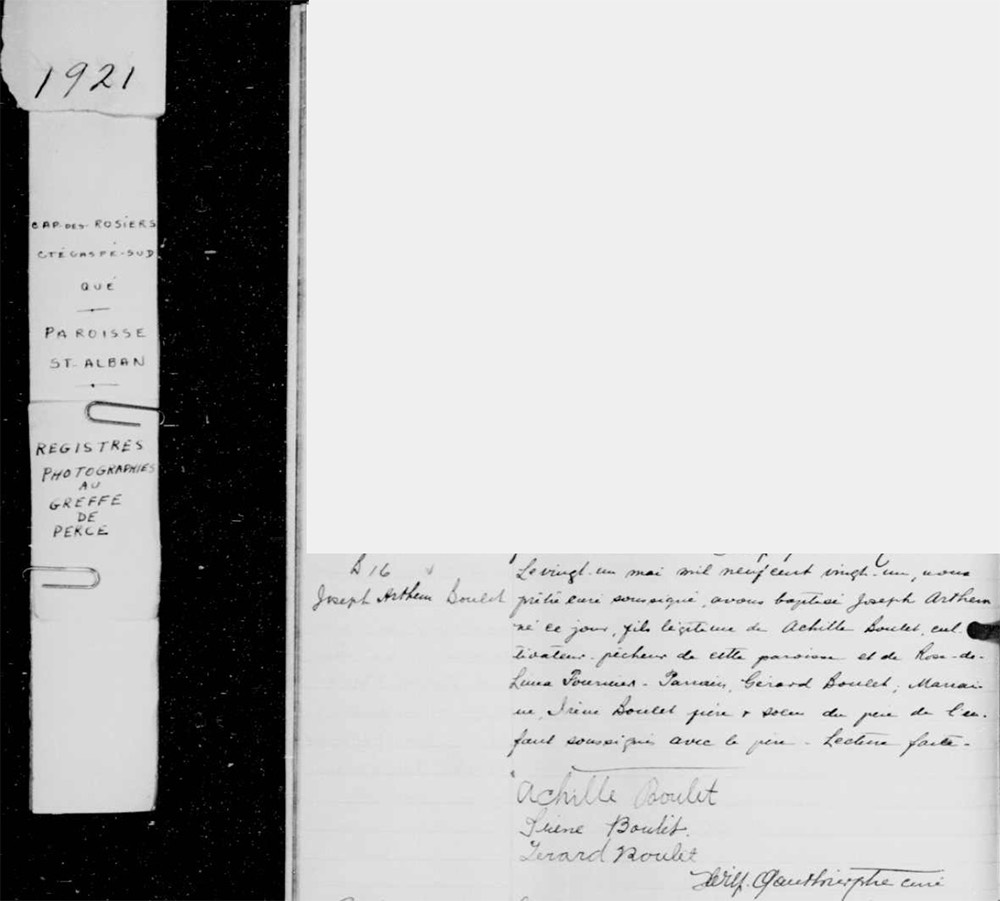 1921
CAP-DES-ROSIERS
CTÉ GASPÉ-SUD
QUÉ
PAROISSE
ST-ALBAN
REGISTRES
PHOTOGRAPHIES
AU
GREFFE
DE
PERCE
B 16
Joseph Arthem Boulet
Le vingt-un mai mil neuf cent vingt-un, nous
prêtre curé soussigné, avons baptisé Joseph Arthem
né ce jour, fils légitime de Achille Boulet, cul-
tivateur-pêcheur de cette paroisse et de Rose-de-
Lima Fournier - Parrain, Gérard Boulet, Marrai-
ne, Irène Boulet frère & soeur du père de l'en-
fant soussignés avec le père - Lecture faite -
Achille Boulet
Irene Boulet.
Gerard Boulet
Wilf. Gauthier ptre curé